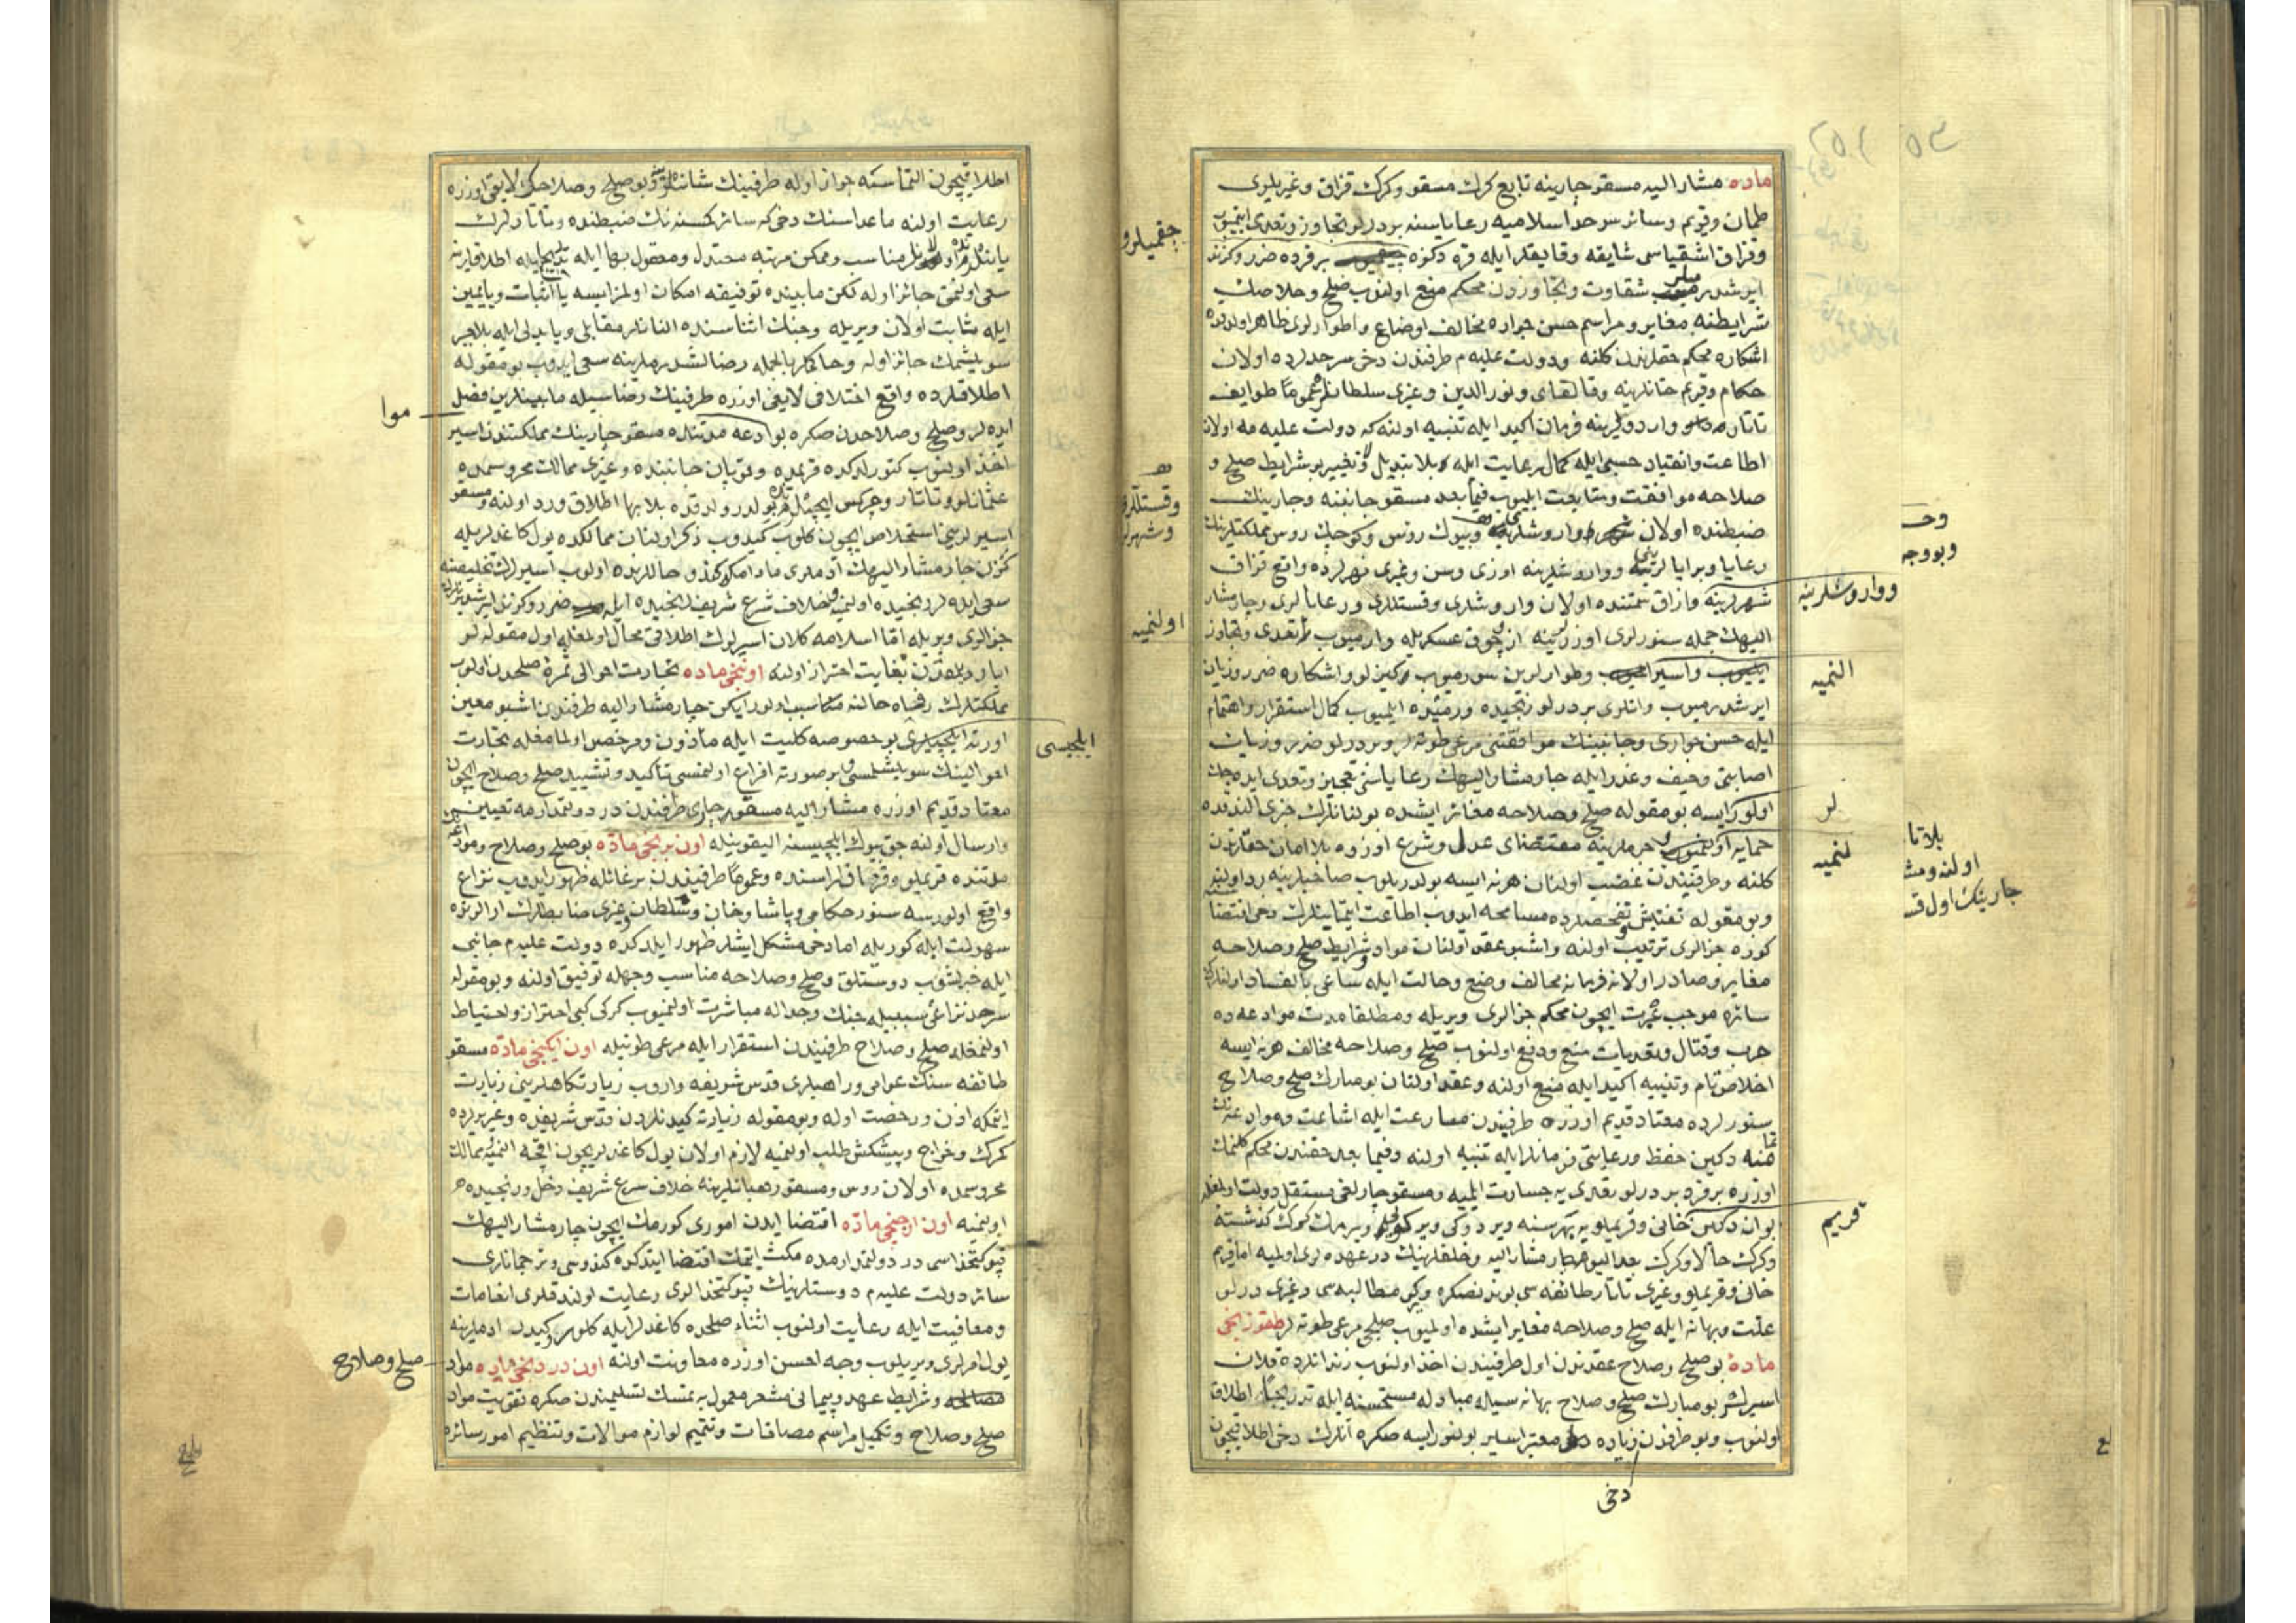 ماده مشار اليه مسقو چارينه تابع كرك مسقو وكرك قزاق وغيريلرى
طمان وقريم وسائر سرحد اسلاميه رعاياسنه بر درلو تجاوز وتعدى ايتميوب
وقزاق اشقياسى شايقه وقايقلر ايله قره دكزه بر فرده ضرر وكزند
شقاوت وتجاوزدن محكم منع اولنوب صلح وصلاحك
شرايطنه مغاير ومراسم حسن جواره مخالف اوضاع واطوارلرى ظاهر اولدقده
اشكاره محكم حقلرندن كلنه ودولت عليه م طرفندن دخى سرحدلرده اولان
حكام وقريم خانلرينه وقالغاى ونور الدين وغيرى سلطانلره عموما طوايف
تاتاره واردولرينه فرمان اكيد ايله تنبيه اولنه كه دولت عليه مه اولان
اطاعت وانقياد حسبى ايله كمال رعايت ايله بلا تبديل ولا تغيير بو شرايط صلح و
صلاحه موافقت ومتابعت ايليوب فيما بعد مسقو جانبنه وچارينك
ضبطنده اولان واروشلرينه وبيوك روس وكوچك روس مملكتلرينك
رعايا وبرايا وواروشلرينه اوزى وسن وغيرى نهرلرده واقع قزاق
شهرلرينه وازاق سمتنده اولان واروشلرى وقستللرى ورعايالرى وچار مشار
اليهك جمله سنورلرى اوزرلرينه از وچوق عسكريله وارميوب تعدى وتجاوز
واسير وطوارلرين سورميوب وكيزلو واشكاره ضرر وزيان
ايرشدرميوب وانلرى بر درلو رنجيده ورميده ايلميوب كمال استقرار واهتمام
ايله حسن جوارى وجانبينك موافقتنى مرعى طوته لر وبر درلو ضرر وزيان
اصابتى وحيف وغدر ايله چار مشار اليهك رعاياسنى تعجيز وتعدى ايده جك
اولور ايسه بو مقوله صلح وصلاحه مغاير ايشده بولنانلرك خبرى الندقده
حمايه جرملرينه مقتضاى عدل وشرع اوزره بلا امان حقلرندن
كلنه وطرفيندن غصب اولنان هر نه ايسه بولدريلوب صاحبلرينه رد اولنه
وبو مقوله تفتيش وتفحصلرده مسامحه ايدوب اطاعت ايتمينلرك دخى اقتضا
كوره جزالرى ترتيب اولنه واشبو عقد اولنان مواد وشرايط صلح وصلاحه
مغاير وصادر اولان فرمانه مخالف وضع وحالت ايله ساعى بالفساد اولنلرك
سائره موجب عبرت ايچون محكم جزالرى ويريله ومطلقا مدت موادعه ده
حرب وقتال وتعديات منع ودفع اولنوب صلح وصلاحه مخالف هر نه ايسه
اخلاص تام وتنبيه اكيد ايله منع اولنه وعقد اولنان بو مبارك صلح وصلاح
سنورلرده معتاد قديم اوزره طرفيندن مسارعت ايله اشاعت وموادعه نك
دكين حفظ ورعايتى فرمانلر ايله تنبيه اولنه وفيما بعد حقندن محكم كلنمك
اوزره بر فرد بر درلو تعدى يه جسارت ايلميه ومسقو چارلغى مستقل دولت اولمغله
بو آنه دكين خانى وقريملويه بهر سنه ويره
وكرك حالا وكرك بعد اليوم چار مشار اليه وخلفلرينك در عهده لرى اولميه اما قريم
خانى وقريملو وغيرى تاتار طائفه سى بوندنصكره ويركى مطالبه سى وغيرى درلو
علت وبهانه ايله صلح وصلاحه مغاير ايشده اولميوب صلحى مرعى طوته لر طقوزنجى
ماده بو صلح وصلاح عقدندن اول طرفيندن اخذ اولنوب زندانلرده قلان
اسيرلر بو مبارك صلح وصلاح بهانه سيله مبادله مستحسنه ايله تدريجيا اطلاق
اولنوب وبو طرفدن زياده معتبر اسير بولنور ايسه صكره انلرك دخى اطلاقيچون
دخى
چقميلر و
وقستللر
وشهرلر
اولنميه
وواروشلرينه
النميه
لر
لنميه
قريم
وحـ
وبووجـ
بلا تا
اولنه ومشـ
چارينك اول قـ
اطلاقيچون التماسنه جواز اوله طرفينك شانلرينه وبو صلح وصلاحك لايقى اوزره
رعايت اولنه ماعداسنك دخى كه سائر كمسنه نك ضبطنده وتاتارلرك
ياننده اولانلر مناسب وممكن مرتبه معتدل ومعقول بها ايله اطلاقلرينه
سعى اولنمق جائز اوله لكن مابينده توفيقه امكان اولمز ايسه يا اثبات ويا يمين
ايله ثابت اولان ويريله وجنك اثناسنده النانلر مقابلى ويا بدلى ايله بلا جبر
سويلشمك جائز اوله وحاكملر بالجمله رضالشدرملرينه سعى ايدوب بو مقوله
اطلاقلرده واقع اختلافى لايقى اوزره طرفينك رضاسيله مابينلرين فصل
ايده لر وصلح وصلاحدن صكره بو موادعه مدتنده مسقو چارينك مملكتندن اسير
اخذ اولنوب كتورلدكده قريمده وبوجاق جانبنده وغيرى ممالك محروسه مده
عثمانلو وتاتار وچركس ايچنده بولدرولدقده بلا بها اطلاق ورد اولنه ومسقو
اسيرلرينى استخلاص ايچون كلوب كيدوب ذكر اولنان ممالكده يول كاغدلريله
كزن چار مشار اليهك آدملرى مادامكه كندو حاللرنده اولوب اسيرلرك تخليصنه
سعى ايده لر رنجيده اولنميه وخلاف شرع شريف رنجيده ضرر وكزند ايرشدرنلرك
جزالرى ويريله اما اسلامه كلان اسيرلرك اطلاقى محال اولمغله اول مقوله لر
ابا ورد بغايت احتراز اولنه اوننجى ماده تجارت احوالى ثمره صلحدن اولوب
مملكتلرك رفاه حالنه مناسب اولور ايكن چار مشار اليه طرفندن اشبو معين
اورته ايلچيلرى بو خصوصه كليت ايله مأذون ومرخص اولمامغله تجارت
احوالينك سويلشلمسى وبر صورته افراغ اولنمسى تأكيد وتشييد صلح وصلاح ايچون
معتاد قديم اوزره مشار اليه مسقو چارى طرفندن در دولتمدارمه تعيين
وارسال اولنه جق بيوك ايلچيسنه اليقونيله اون برنجى ماده بو صلح وصلاح وموادعه
مدتنده قريملو وقزاق اراسنده وعموما طرفيندن بر غائله ظهور ايدوب نزاع
واقع اولورسه سنور حكامى وپاشا وخان وسلطان وغيرى ضابطلرك ارالرنده
سهولت ايله كوريله اما دخى مشكل ايشلر ظهور ايلدكده دولت عليه م جانبى
ايله خبرلشوب دوستلق وصلح وصلاحه مناسب وجهله توفيق اولنه وبو مقوله
سرحد نزاعى سببيله جنك وجداله مباشرت اولنميوب كركى كبى احتراز واحتياط
اولنمغله صلح وصلاح طرفيندن استقرار ايله مرعى طوتيله اون ايكنجى ماده مسقو
طائفه سنك عوامى وراهبلرى قدس شريفه واروب زيارتكاهلرينى زيارت
ايتمكه اذن ورخصت اوله وبو مقوله زيارته كيدنلردن قدس شريفده وغيريرلرده
كمرك وخراج وپيشكش طلب اولنميه لازم اولان يول كاغدلريچون اقچه النميه ممالك
محروسه مده اولان روس ومسقو رهبانلرينه خلاف شرع شريف دخل ورنجيده
اولنميه اون اوچنجى ماده اقتضا ايدن امورى كورمك ايچون چار مشار اليهك
قپو كتخداسى در دولتمدارمده مكث ايتمك اقتضا ايتدكده كندوسى وترجمانلرى
سائر دولت عليه م دوستلرينك قپو كتخدالرى رعايت اولندقلرى انعامات
ومعافيت ايله رعايت اولنوب اثناء صلحده كاغدلر ايله كلور وكيدر ادملرينه
يول امرلرى ويريلوب وجه احسن اوزره معاونت اولنه اون دردنجى ماده مواد
مصالحه وشرايط عهد وپيمانى مشعر معمول به تمسك تسليمندن صكره تقويت مواد
صلح وصلاح وتكميل مراسم مصافات وتتميم لوازم موالات وتنظيم امور سائره
موا
ايلچيسى
صلح وصلاح